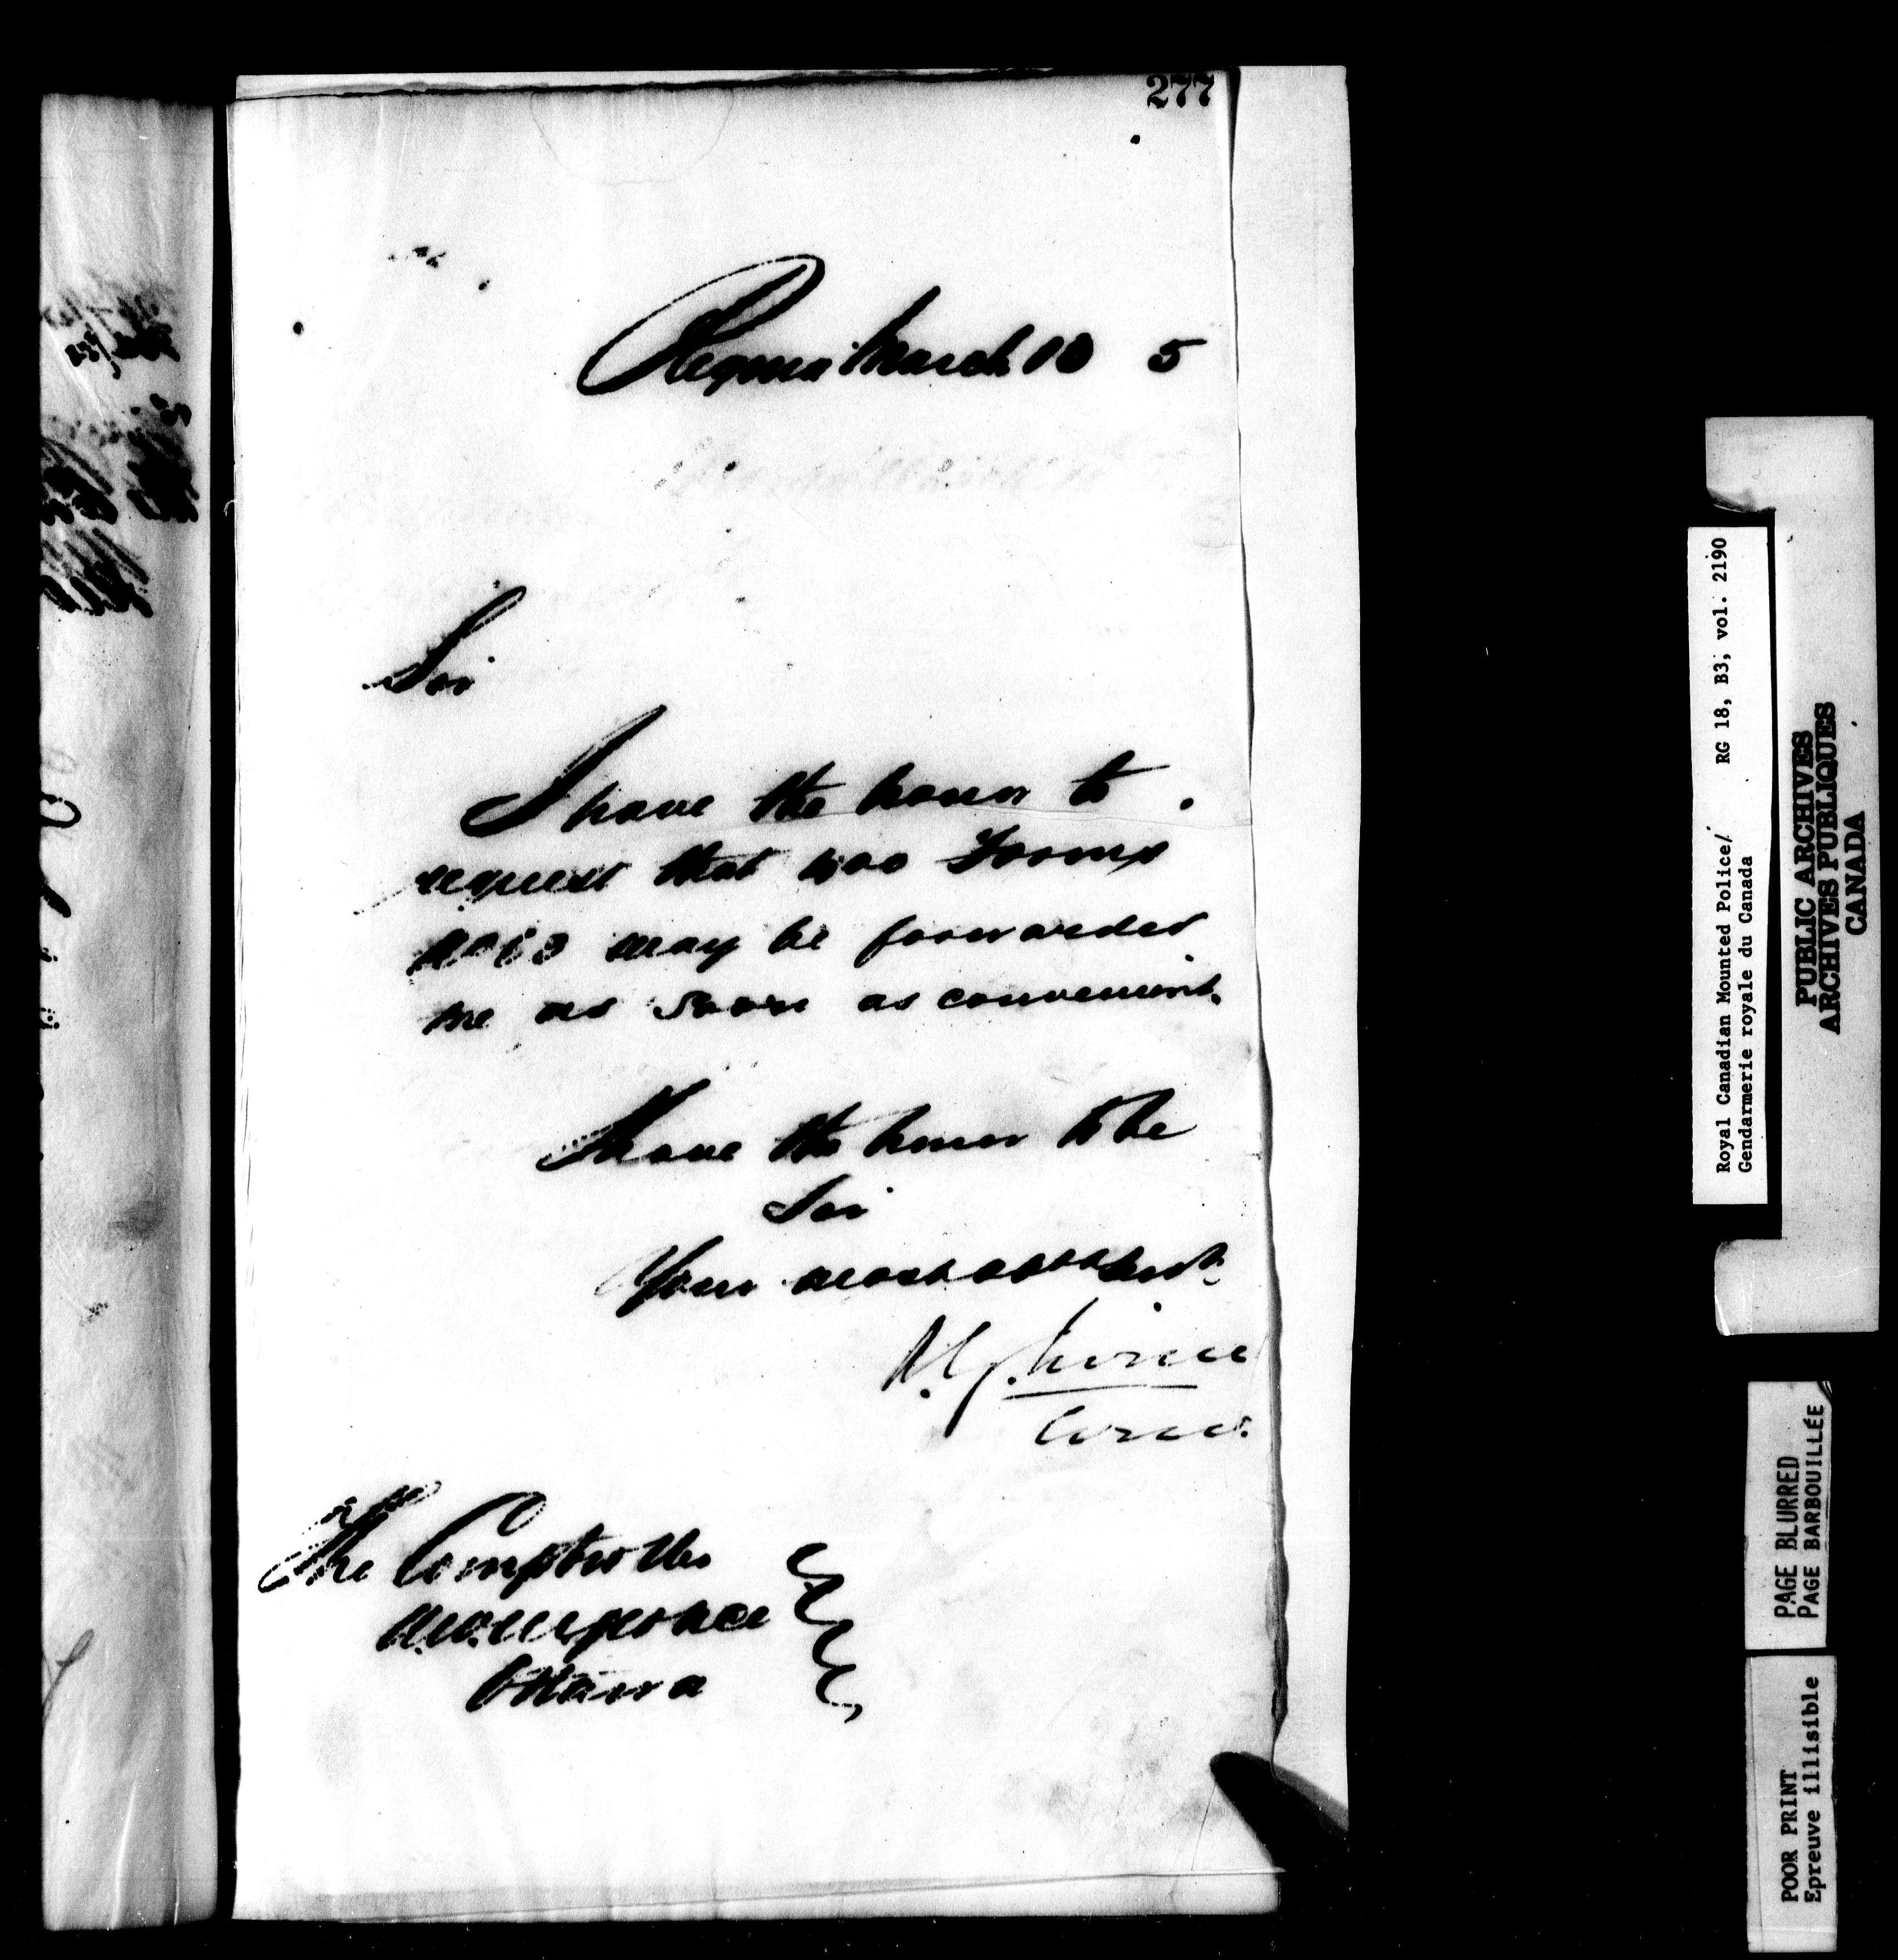 277
Regina March 10 5
Sir
I have the honor to
request that 100 Forms
may be forwarded
me as soon as convenient.
I have the honor to be
Sir
Your most obt
A. G. Irvine
The Comptroller
Ottawa
Royal Canadian Mounted Police/ RG 18, B3, vol. 2190
Gendarmerie royale du Canada
PUBLIC ARCHIVES
ARCHIVES PUBLIQUES
CANADA
PAGE BLURRED
PAGE BARBOUILLÉE
POOR PRINT
Epreuve illisible